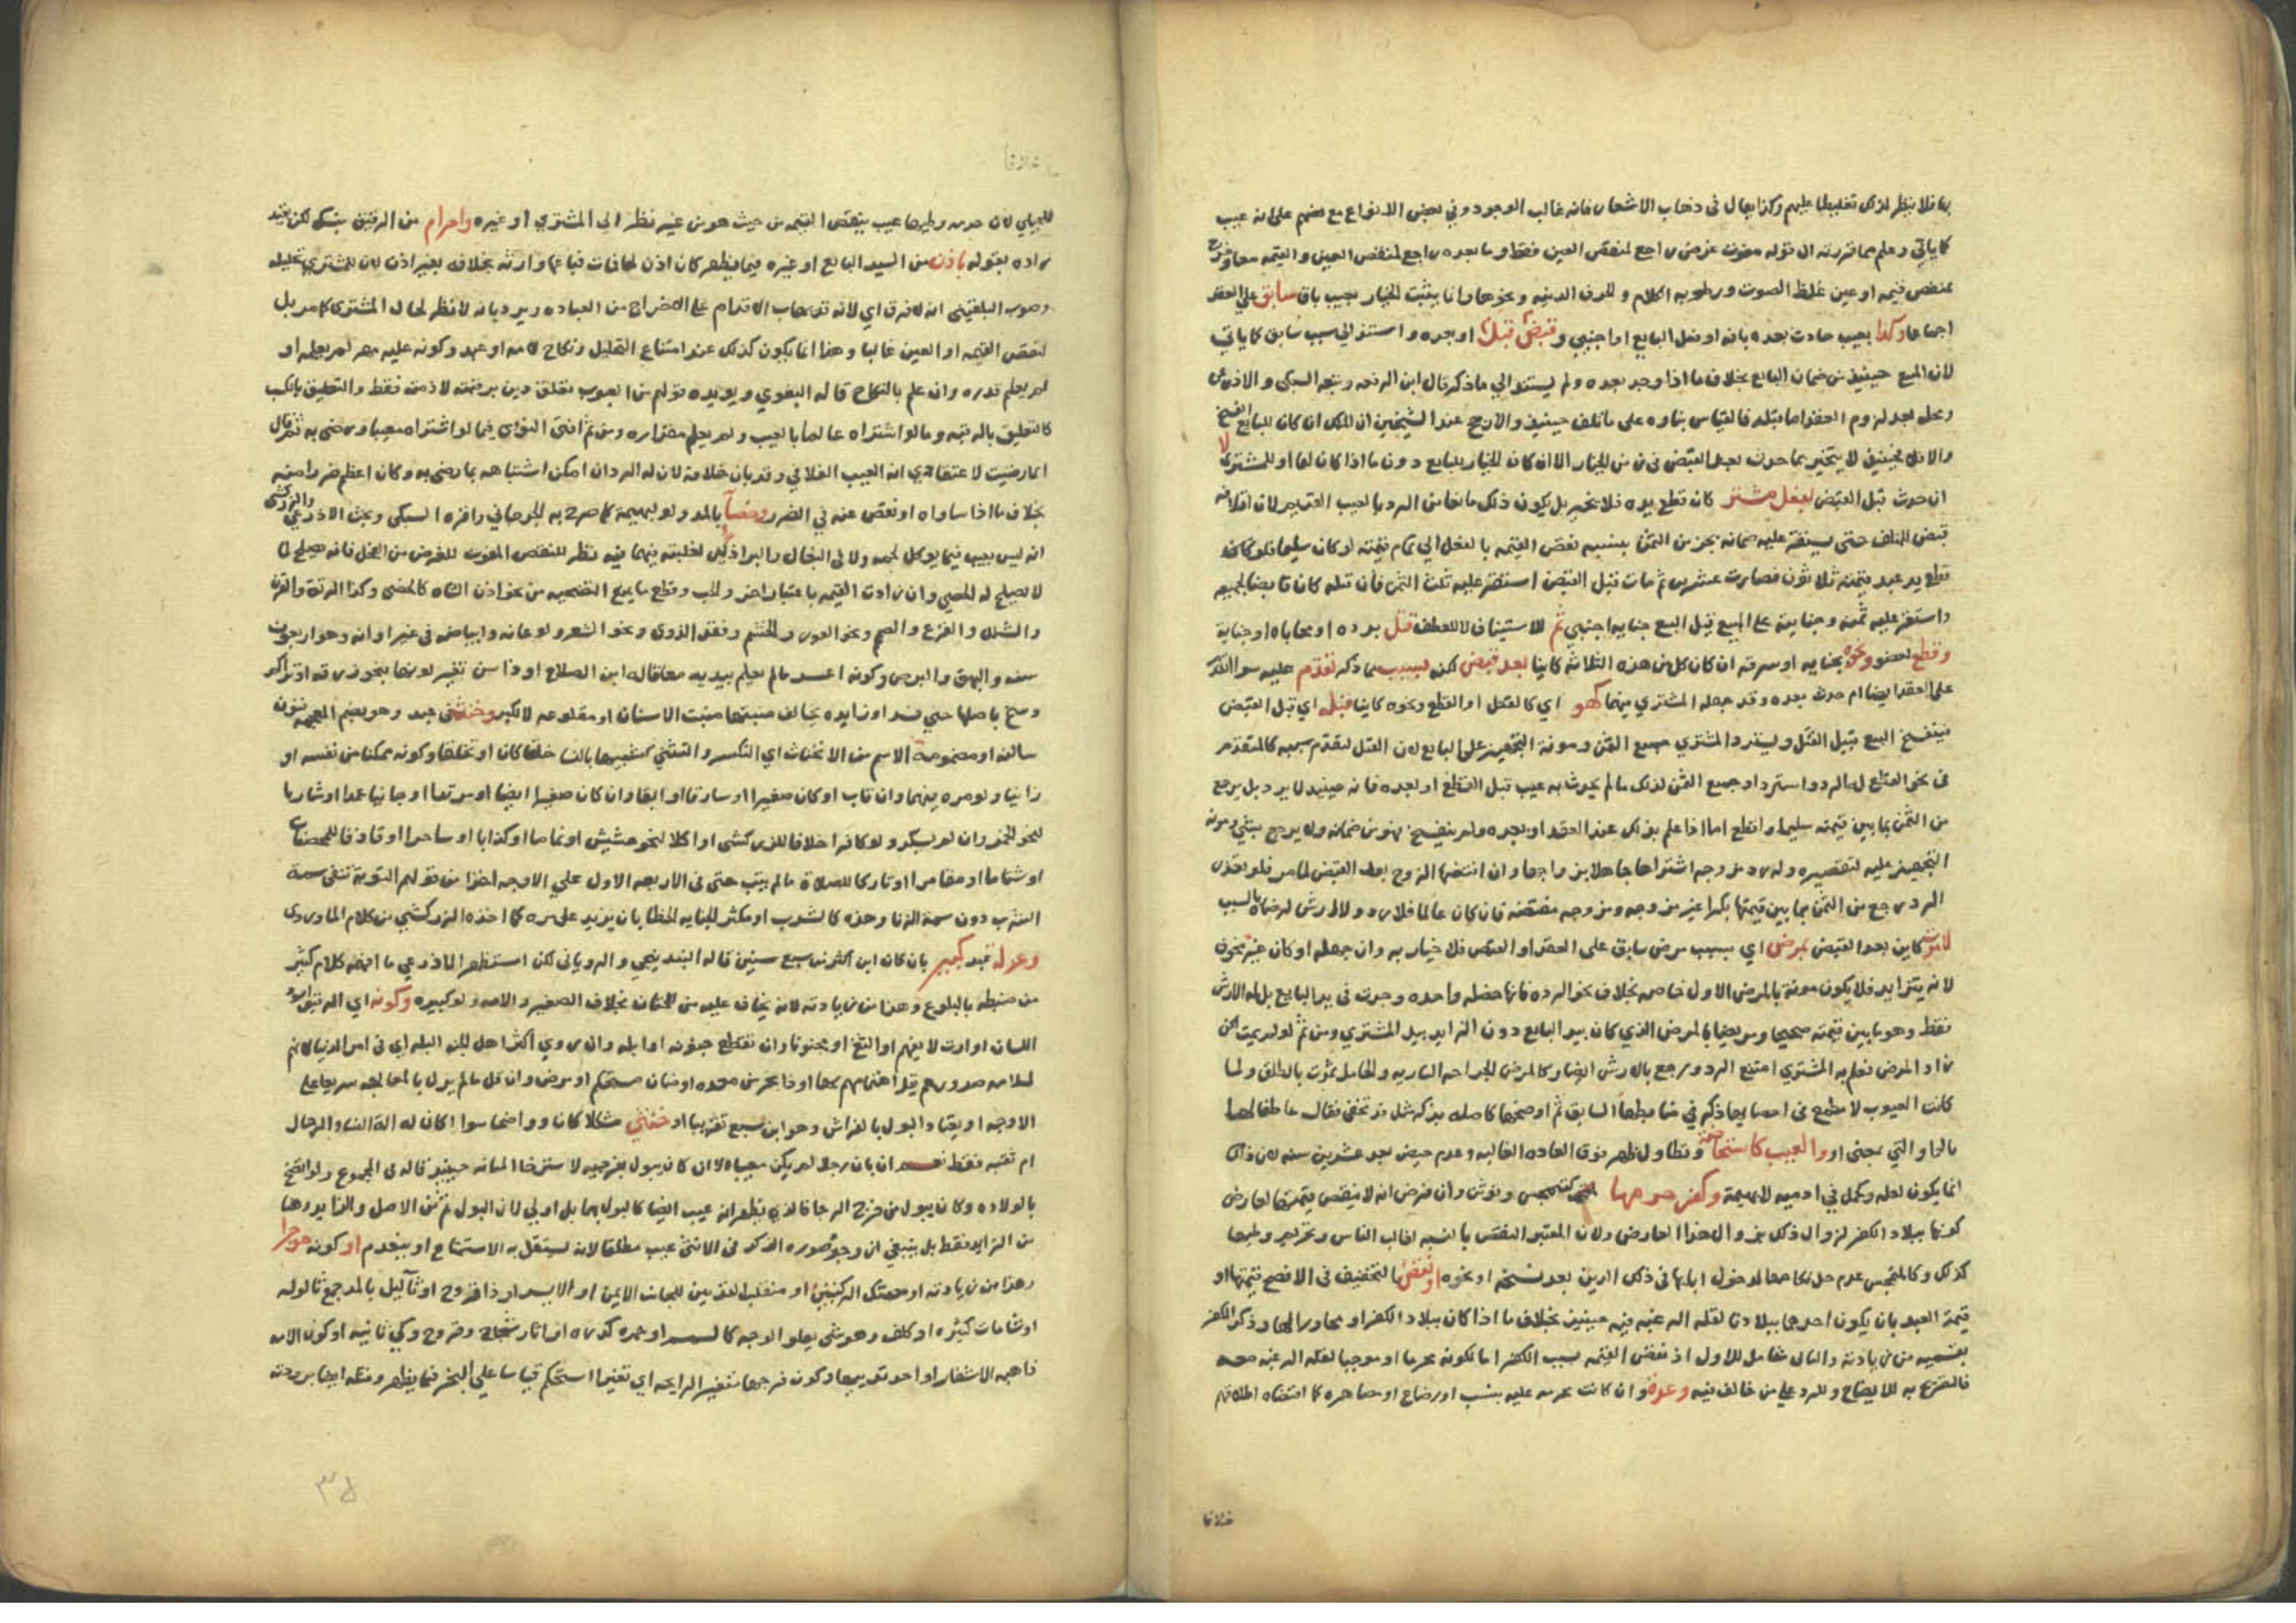 بها فلا ينظر لذلك تغليظا عليهم وكذا يقال في ذهاب الاشفار فانه غالب الوجود وفي بعض الانواع مع نصهم على انه عيب
كما ياتي وعلم مما قررته ان قوله مفوت غرض راجع لمنقص العين فقط وما بعده راجع لمنقص العين والقيمة
بمنقص قيمه او عين غلظ الصوت ورطوبه الكلام وانما يثبت الخيار بعيب باق سابق على العقد
اجماعا وكذا بعيب حادث بعده بافه او فعل البايع او اجنبي وقبض قبله او بعده واستند الي سبب سابق كما ياتي
لان المبيع حينيذ من ضمان البايع بخلاف ما اذا وجد بعده ولم يستند الي ما ذكر قال ابن الرفعه وتبعه السبكي والاذرعي
ومحله بعد لزوم العقد اما قبله فالقياس بناوه على ما تلف حينيذ والارجح عند الشيخين ان الملك ان كان للبايع انفسخ
والا فلا فحينيذ لا يتخير بما حدث بعد القبض في زمن الخيار الا ان كان الخيار للبايع دون ما اذا كان لهما او للمشتري لا
ان حدث قبل القبض بفعل مشتر كان قطع يده فلا تخيير بل يكون ذلك مانعا من الرد بالعيب القديم لان اتلافه
قبض للمتلف حتى يستقر عليه ضمانه بجزء من الثمن بنسبه نقص القيمه بالفعل الي تمام قيمته لو كان سليما فلو كان
قطع يد عبد قيمته ثلاثون فصارت عشرين ثم مات قبل القبض استقر عليه ثلث الثمن فان قتله كان قابضا لجميعه
واستقر عليه ثمنه وجنايته على المبيع قبل البيع جنايه اجنبي ثم للاستيناف لا للعطف قتل برده او جنايه
وقطع لعضو ونحوه بجنايه او سرقه ان كان كل من هذه الثلاثه كاينا بعد قبض لكن لسبب مما ذكر تقدم عليه سوا
على العقد ايضا ام حدث بعده وقد جهله المشتري فيهما كهو اي كالقتل او القطع ونحوه كاينا قبله اي قبل القبض
فينفسخ البيع قبيل القتل ويسترد المشتري جميع الثمن ومونة التجهيز على البايع لان القتل لتقدم سببه كالمتقدم
في نحو القطع له الرد واسترداد جميع الثمن لذلك ما لم يحدث به عيب قبل القطع او بعده فانه حينيذ لا يرد بل يرجع
من الثمن بما بين قيمته سليما واقطع اما اذا علم بذلك عند العقد او بعده ولم ينفسخ فهو من ضمانه ولا يرجع بشي ومونة
التجهيز عليه لتقصيره وله رد مزوجه اشتراها جاهلا بزواجها وان افتضها الزوج بعد القبض لما مر فلو تعذر
الرد رجع من الثمن بما بين قيمتها بكرا غير مزوجه ومزوجه مفتضه فان كان عالما فلا رد ولا ارش لرضاه بالسبب
لا موت كاين بعد القبض بمرض اي بسبب مرض سابق على العقد او القبض فلا خيار به وان جهله او كان غير مخوف
لانه يتزايد فلا يكون موته بالمرض الاول خاصه بخلاف نحو الرده فانها خصله واحده وجدت في يد البايع بل له الارش
فقط وهو ما بين قيمته صحيحا ومريضا بالمرض الذي كان بيد البايع دون الزايد بيد المشتري ومن ثم لو لم يمت لكن
زاد المرض فعلم به المشتري امتنع الرد ورجع بالارش ايضا وكالمرض الجراحه الساريه والحامل تموت بالطلق ولما
كانت العيوب لا مطمع في احصايها ذكر في ضابطها السابق ثم اوضحها كاصله بذكر مثل قد تخفى فقال عاطفا لها
بالواو التي بمعنى او والعيب كاستحاضة وتطاول طهر فوق العاده الغالبه وعدم حيض بعد عشرين سنه لان ذلك
انما يكون لعله وحمل في ادميه لا بهيمة وكفر حرمها كتمجس وتوثن وان فرض انه لا ينقص قيمتها لعارض
كونها ببلاد الكفر لزوال ذلك بزوال هذا العارض ولان المعتبر النقص بالنسبه لغالب الناس وتحريم وطيها
كذلك وكالمتمجس عدم حل نكاحها لدخول ابايها في ذلك الدين بعد نسخه او نحوه او نقص بالتخفيف في الافصح قيمتها او
قيمة العبد بان يكون احدهما ببلادنا لقله الرغبه فيه حينيذ بخلاف ما اذا كان ببلاد الكفر او مجاورا لها وذكر الكفر
بقسميه من زيادته والثاني شامل للاول اذ نقص القيمه بسبب الكفر اما لكونه محرما او موجبا لقله الرغبه
فالتصريح به للايضاح وللرد على من خالف فيه وعده وان كانت محرمه عليه بنسب او رضاع او مصاهره كما اقتضاه اطلاقهم
خلافا
خلافا
للجيلي لان حرمه وطيها عيب ينقص القيمه من حيث هو من غير نظر الي المشتري او غيره واحرام من الرقيق بنسك لكن بقيد
زاده بقوله باذن من السيد البايع او غيره فيما يظهر كان اذن لها فمات فباعها وارثه بخلافه بغير اذن لان للمشتري تحليله
وصوب البلقيني انه لا فرق اي لانه قد يهاب الاقدام على الاخراج من العباده ويرد بانه لا نظر لحال المشتري كما مر بل
لنقص القيمه او العين غالبا وهذا انما يكون كذلك عند امتناع التحليل ونكاح لامه او عبد وكونه عليه مهر لم يعلمه او
لم يعلم قدره وان علم بالنكاح قاله البغوي ويويده قولهم من العيوب تعلق دين برقبته لا ذمته فقط والتعليق بالكسب
كالتعليق بالرقبه وما لو اشتراه عالما بالعيب ولم يعلم مقداره ومن ثم افتى النووي فيما لو اشتراه معيبا ورضي به ثم قال
انما رضيت لاعتقادي انه العيب الفلاني وقد بان خلافه لان له الرد ان امكن اشتباهه بما رضي به وكان اعظم ضررا منه
بخلاف ما اذا ساواه او نقص عنه في الضرر وخصاء بالمد ولو لبهيمة كما صرح به الجرجاني واقره السبكي وبحث الاذرعي والزركشي
انه ليس بعيب فيما يوكل لحمه ولا في البغال والبراذين لغلبته فيهما فيه نظر للنقص المفوت للغرض من الفحل فانه يصلح لما
لا يصلح له الخصي وان زادت القيمه باعتبار اخر والجب وقطع ما يمنع التضحيه من نحو اذن الشاه كالخصي وكذا الرتق والقرن
والشلل والقرع والصمم ونحو العور والخشم وفقد الذوق ونحو الشعر ولو عانه وابيضاضه في غير اوانه وهو اربعون
سنه والبهق والبرص وكونه اعسر ما لم يعلم بيديه معا قاله ابن الصلاح او ذا سن تغير لونها بنحو زرقه او تراكم
وسخ باصلها حتي فسد او زايده يخالف منبتها منبت الاسنان او مقلوعه لا لكبر وخنثي عبد وهو بضم المعجمه فنون
ساكنه او مضمومة الاسم من الانخناث اي التكسر والتثني كتشبيهها بالنسا خلقا كان او تخلقا وكونه ممكنا من نفسه او
زانيا ولو مره منهما وان تاب او كان صغيرا او سارقا او ابقا وان كان صغيرا ايضا او مرتدا او جانيا عمدا او شاربا
لنحو الخمر وان لم يسكر ولو كافرا خلافا للزركشي او اكلا لنحو حشيش او نماما او كذابا او ساحرا او قاذفا للمحصنات
او شتاما او مقامرا او تاركا للصلاة ما لم يتب حتى في الاربعه الاول على الاوجه اخذا من قولهم التوبة تنفي سمة
الشرب دون سمة الزنا وهذه كالشرب او مكثر الجنايه الخطا بان يزيد على مره كما اخذه الزركشي من كلام الماوردي
وعدم عبد كبير بان كان ابن اكثر من سبع سنين قاله البندنيجي والروياني لكن استظهر الاذرعي ما افهمه كلام كثير
من ضبطه بالبلوغ وهذا من زيادته لانه يخاف عليه من الختان بخلاف الصغير والامه ولو كبيره وكونه اي الرقيق
اللسان او ارت لا يفهم او الثغ او مجنونا وان تقطع جنونه او ابله وان روي اكثر اهل الجنه البله اي في امر الدنيا لانهم
لسلامه صدورهم قل اهتمامهم بها او ذا بخر من معده او صنان مستحكم او مرض وان قل ما لم يزل بالمعالجه سريعا على
الاوجه او يعتاد البول بالفراش وهو ابن سبع تقريبا او خنثي مشكلا كان او واضحا سوا اكان له الة النسا والرجال
ام ثقبه فقط نعم ان بان رجلا لم يكن معيبا الا ان كان يبول بفرجيه لاسترخا المثانه حينيذ قاله في المجموع ولو اتضح
بالولاده وكان يبول من فرج الرجال فالذي يظهر انه عيب ايضا كالبول بهما بل اولى لان البول ثم من الاصل والزايد وهنا
من الزايد فقط بل ينبغي ان وجود صوره الذكر في الانثى عيب مطلقا لانه يستقل به الاستمتاع او بمخدم او كونه
وهذا من زيادته او مصتك الركبتين او منقلب القدمين للجانب الايمن او الايسر او ذا قروح او ثآليل بالمد جمع ثالوله
او شامات كثيره او كلف وهو شي يعلو الوجه كالسمسم او حمره كدره او اثار شجاج وقروح وكي شانيه او كون الامه
ذاهبه الاشفار او احد ثدييها وكون فرجها متغير الرايحه اي تغيرا استحكم قياسا على البخر فيما يظهر ومثله ايضا